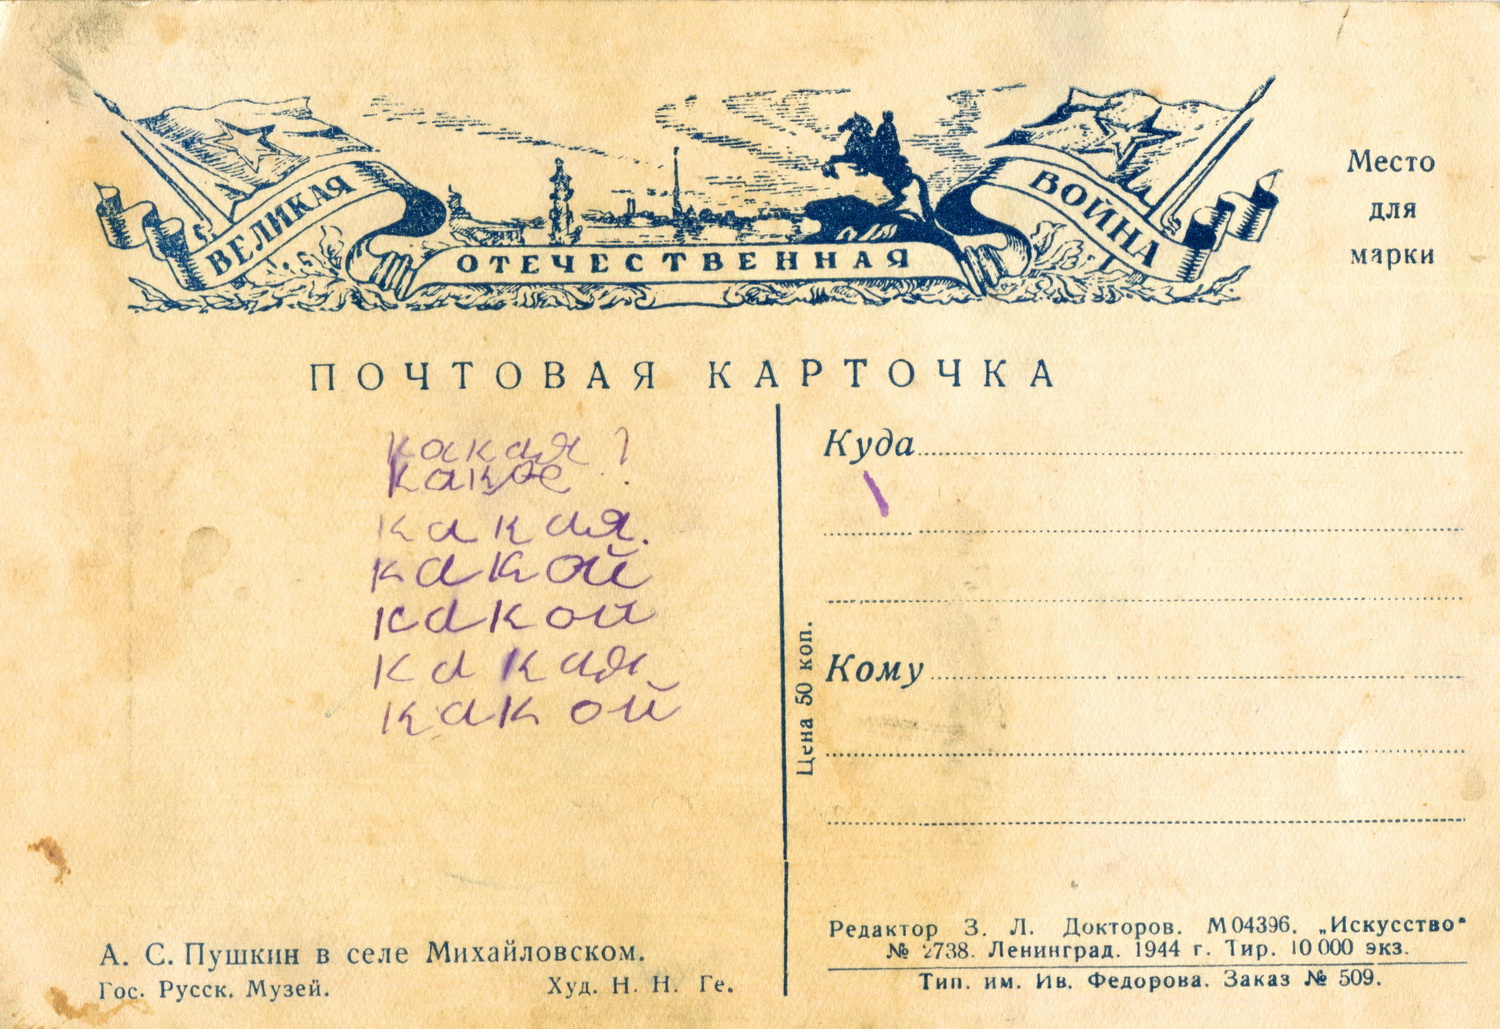 ВЕЛИКАЯ ОТЕЧЕСТВЕННАЯ ВОЙНА
Место
для
марки
ПОЧТОВАЯ КАРТОЧКА
какая ?
какое
какая.
какой
какой
какая
какой
Цена 50 коп.
Куда
Кому
А. С. Пушкин в селе Михайловском.
Гос. Русск. Музей. Худ. Н. Н. Ге.
Редактор З. Л. Докторов. М04396. „Искусство"
№ 2738. Ленинград. 1944 г. Тир. 10 000 экз.
Тип. им. Ив. Федорова. Заказ № 509.